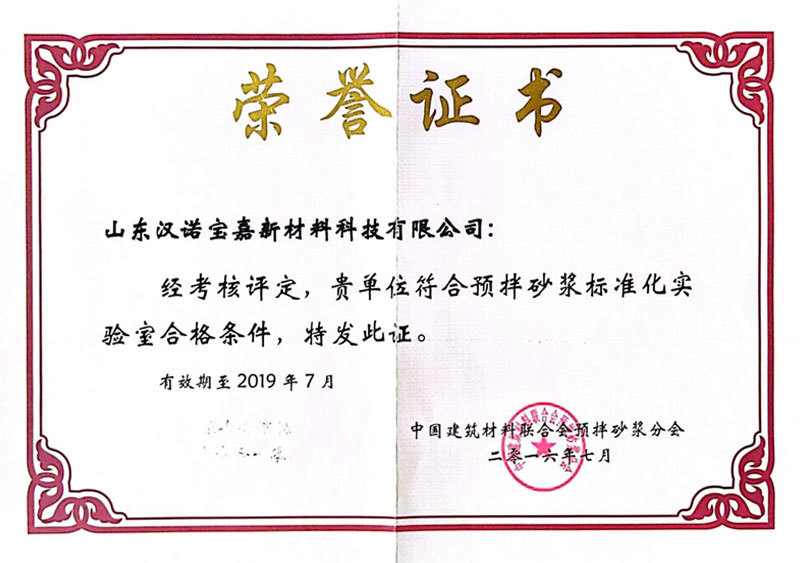 荣誉证书
山东汉诺宝嘉新材料科技有限公司：
经考核评定，贵单位符合预拌砂浆标准化实
验室合格条件，特发此证。
有效期至2019年7月
中国建筑材料联合会预拌砂浆分会
二零一六年七月